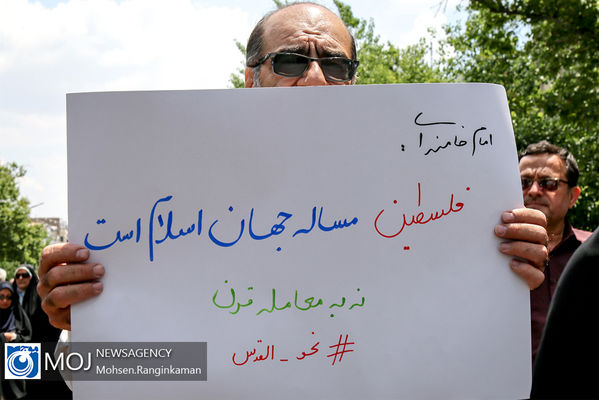 امام خامنه‌ای:
فلسطین مساله جهان اسلام است
نه به معامله قرن
# نحو_القدس
MOJ NEWSAGENCY
Mohsen.Ranginkaman